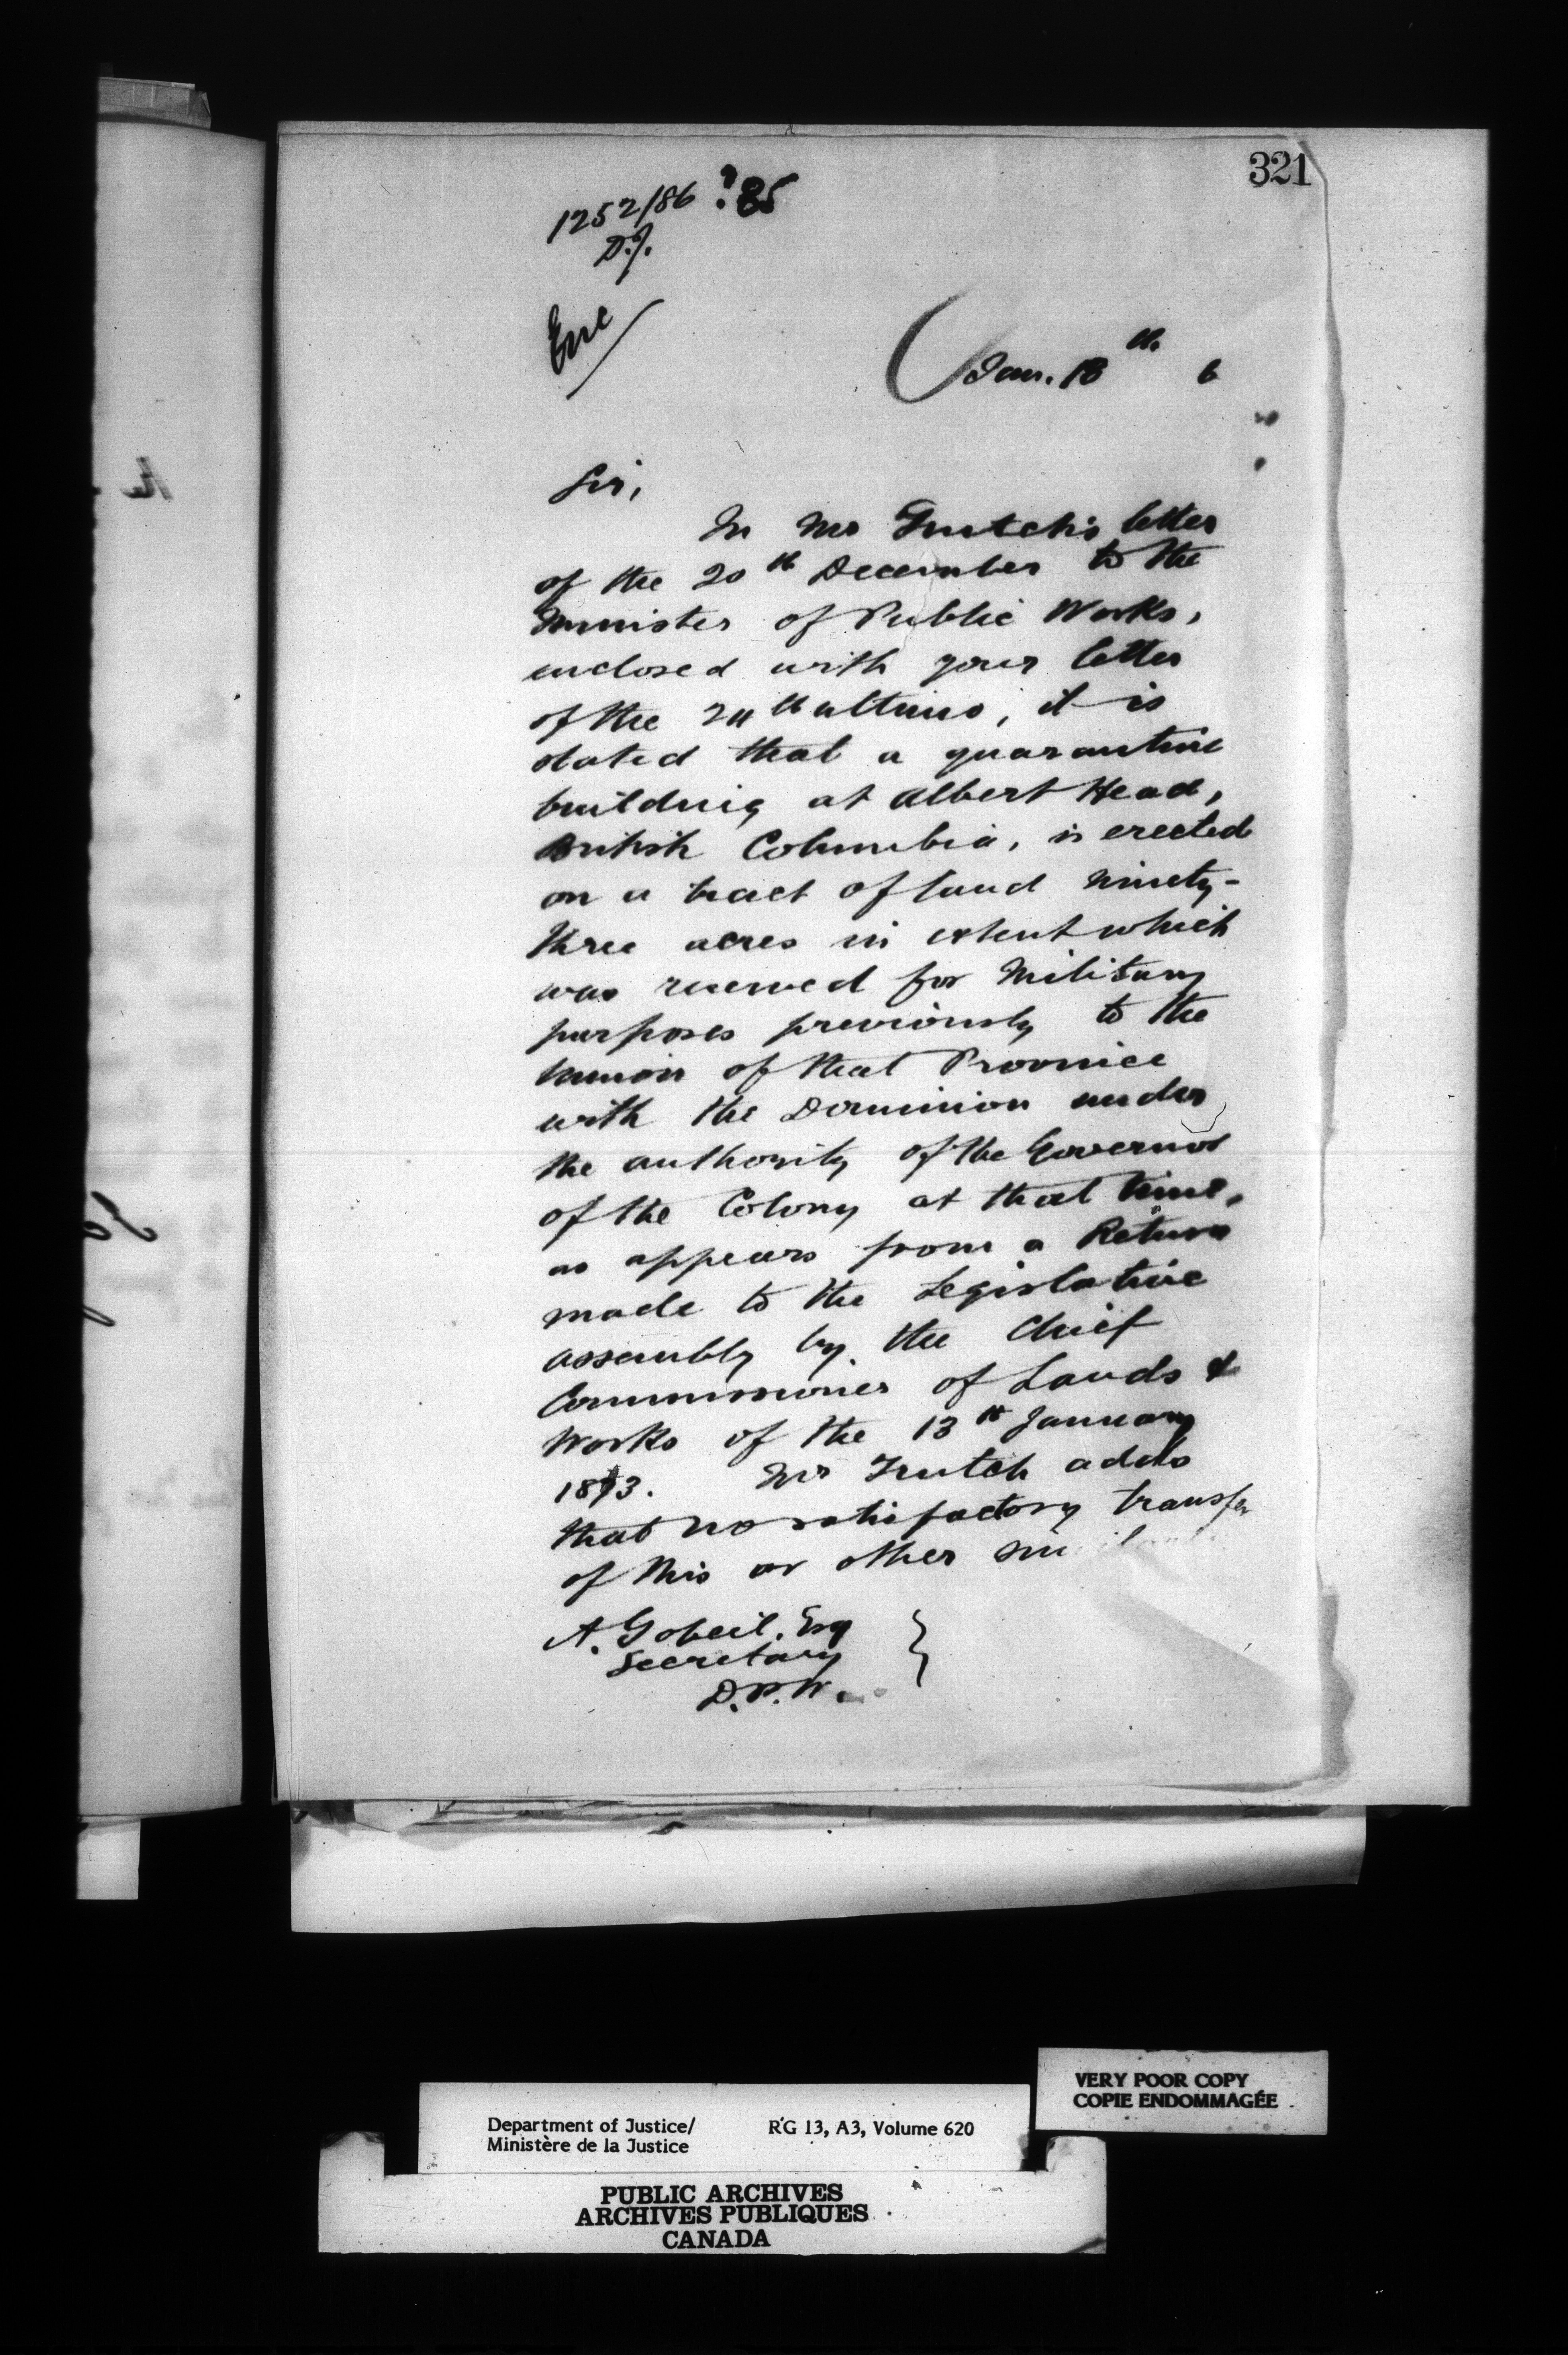 321
1252/86 ? 85
D.J.
Enc
Jan. 18th 6
Sir,
In Mr Trutch's letter
of the 20th December to the
Minister of Public Works,
enclosed with your letter
of the ultimo, it is
stated that a quarantine
building at Albert Head,
British Columbia, is erected
on a tract of land ninety-
three acres in extent which
was reserved for Military
purposes previously to the
union of that Province
with the Dominion under
the authority of the Governor
of the Colony at that time,
as appears from a Return
made to the Legislative
assembly by the Chief
Commissioner of Lands &
Works of the 13th January
1873. Mr Trutch adds
that no satisfactory transfer
of this or other similar
A. Gobeil. Esq
Secretary
D.P.W.
VERY POOR COPY
COPIE ENDOMMAGÉE
Department of Justice/ RG 13, A3, Volume 620
Ministère de la Justice
PUBLIC ARCHIVES
ARCHIVES PUBLIQUES
CANADA